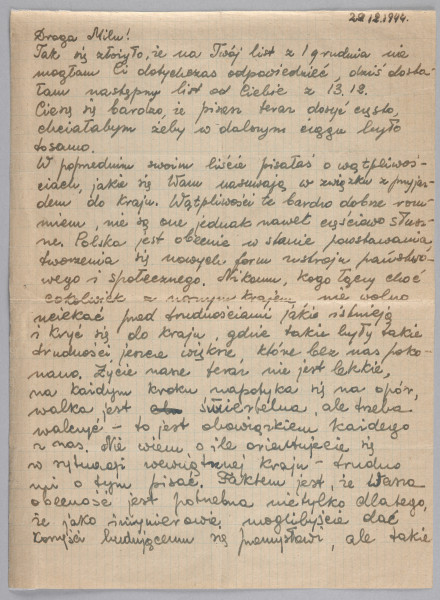 28.12.1944.
Droga Milu!
Tak się złożyło, że na Twój list z 1 grudnia nie
mogłam Ci dotychczas odpowiedzieć, dziś dosta-
łam następny list od Ciebie z 13.12.
Cieszę się bardzo, że piszesz teraz dosyć często,
chciałabym żeby w dalszym ciągu było
tosamo.
W poprzednim swoim liście pisałaś o wątpliwoś-
ciach, jakie się Wam nasuwają w związku z przyjaz-
dem do kraju. Wątpliwości te bardzo dobrze rozu-
miem, nie są one jednak nawet częściowo słusz-
ne. Polska jest obecnie w stanie powstawania,
tworzenia się nowych form ustroju państwo-
wego i społecznego. Nikomu, kogo łączy choć
cokolwiek z naszym krajem nie wolno
uciekać przed trudnościami jakie istnieją
i kryć się do kraju, gdzie takie były takie
trudności, jeszcze większe, które bez nas poko-
nano. Życie nasze teraz nie jest lekkie,
na każdym kroku napotyka się na opór,
walka jest śmiertelna, ale trzeba
walczyć – to jest obowiązkiem każdego
z nas. Nie wiem o ile orientujecie się
w sytuacji wewnętrznej kraju – trudno
mi o tym pisać. Faktem jest, że Wasza
obecność jest potrzebna nietylko dlatego,
że jako inżynierowie moglibyście dać
korzyści budującemu się przemysłowi, ale takie